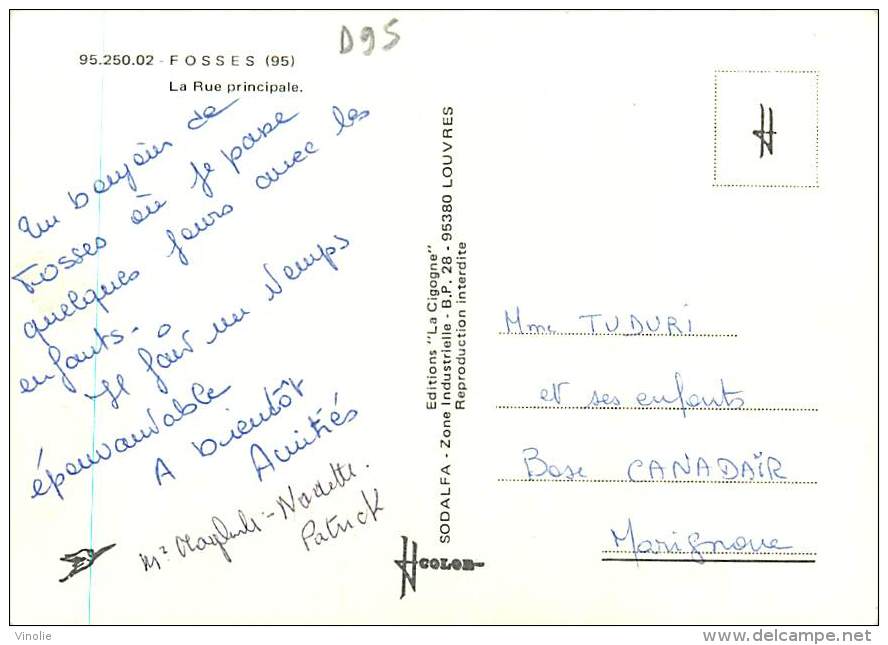 D95
95.250.02 - FOSSES (95)
La Rue principale.
Un bonjour de
Fosses où je passe
quelques jours avec les
enfants.
Il fait un temps
épouvantable
A bientôt
Amitiés
Nanette.
Patrick
Editions "La Cigogne"
SODALFA - Zone Industrielle - B.P. 28 - 95380 LOUVRES
Reproduction interdite
COLOR
Mme TUDURI
et ses enfants
Base CANADAÏR
Marignane
Vinolie
delcampe.net